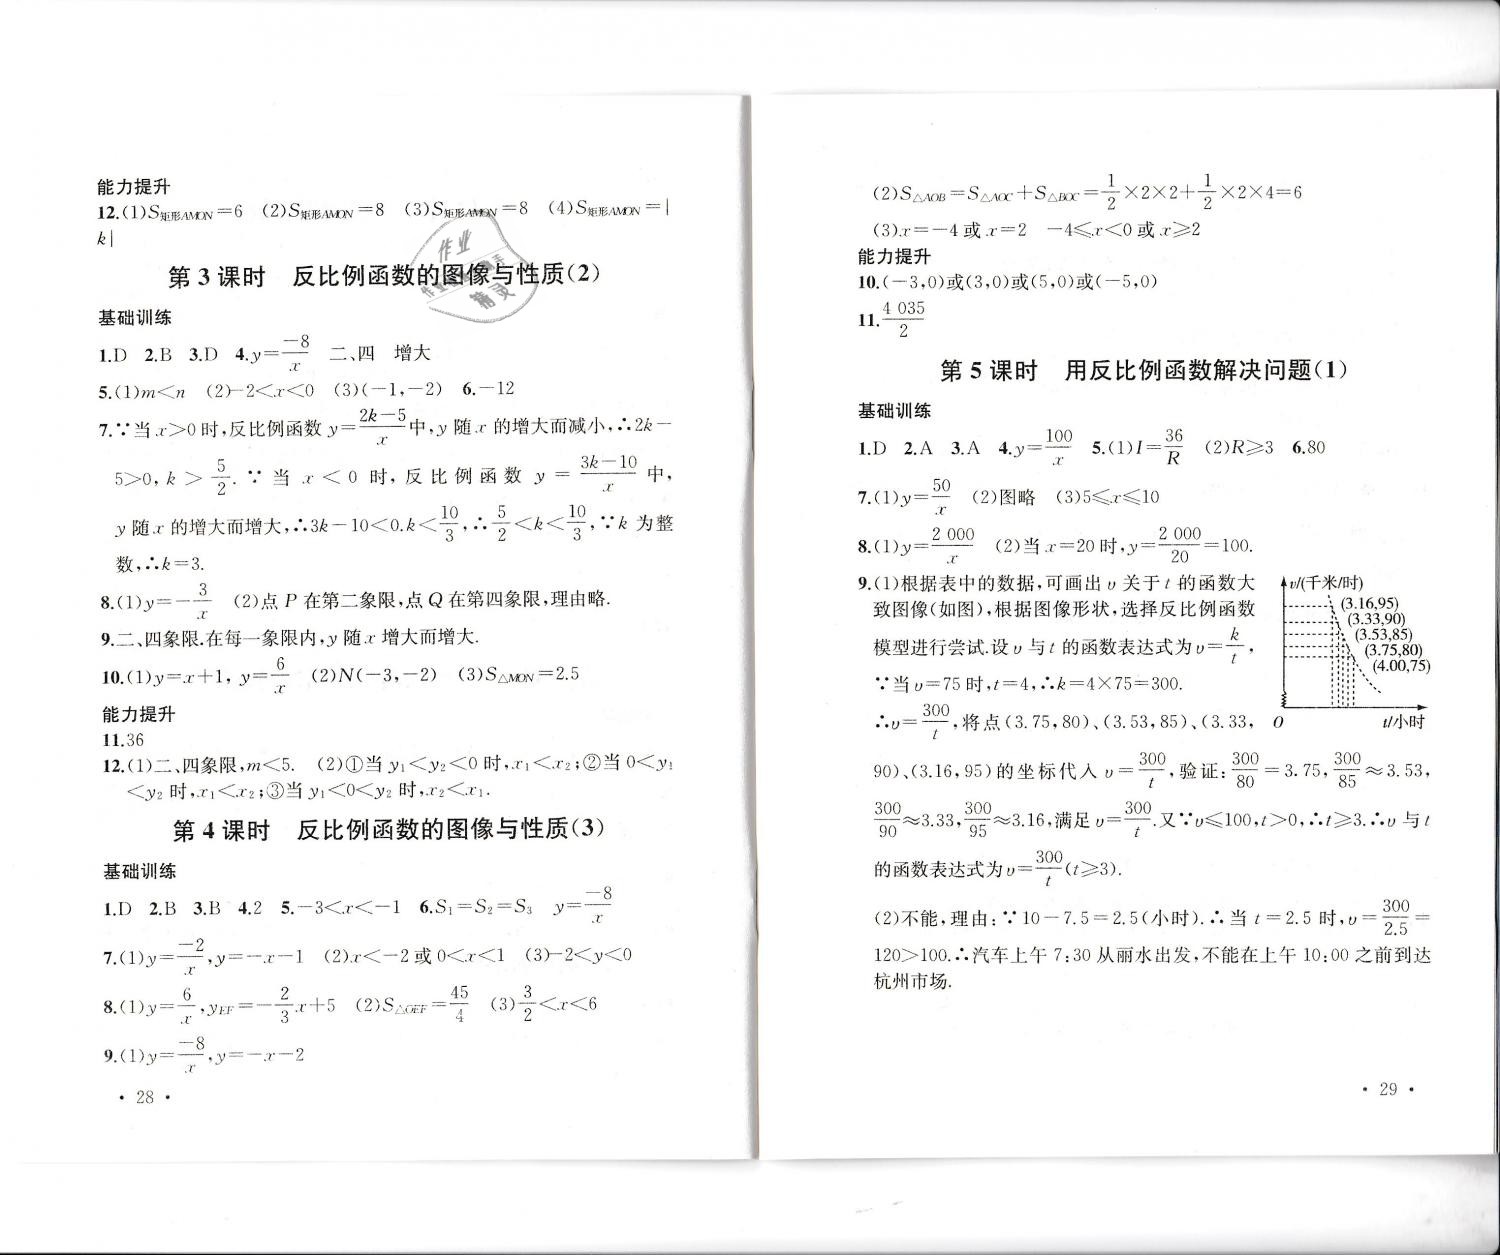 能力提升
12.(1)S矩形AMON=6 (2)S矩形AMON=8 (3)S矩形AMON=8 (4)S矩形AMON=|
k|
第3课时 反比例函数的图像与性质(2)
基础训练
1.D 2.B 3.D 4.y=\frac{-8}{x} 二、四 增大
5.(1)m<n (2)-2<x<0 (3)(-1,-2) 6.-12
7.∵当x>0时,反比例函数y=\frac{2k-5}{x}中,y随x的增大而减小,∴2k-
5>0,k>\frac{5}{2}.∵当x<0时,反比例函数y=\frac{3k-10}{x}中,
y随x的增大而增大,∴3k-10<0.k<\frac{10}{3},∴\frac{5}{2}<k<\frac{10}{3},∵k为整
数,∴k=3.
8.(1)y=-\frac{3}{x} (2)点P在第二象限,点Q在第四象限,理由略.
9.二、四象限.在每一象限内,y随x增大而增大.
10.(1)y=x+1,y=\frac{6}{x} (2)N(-3,-2) (3)S△MON=2.5
能力提升
11.36
12.(1)二、四象限,m<5. (2)①当y₁<y₂<0时,x₁<x₂;②当0<y₁
<y₂时,x₁<x₂;③当y₁<0<y₂时,x₂<x₁.
第4课时 反比例函数的图像与性质(3)
基础训练
1.D 2.B 3.B 4.2 5.-3<x<-1 6.S₁=S₂=S₃ y=\frac{-8}{x}
7.(1)y=\frac{-2}{x},y=-x-1 (2)x<-2或0<x<1 (3)-2<y<0
8.(1)y=\frac{6}{x},yEF=-\frac{2}{3}x+5 (2)S△OEF=\frac{45}{4} (3)\frac{3}{2}<x<6
9.(1)y=\frac{-8}{x},y=-x-2
· 28 ·
作业
精灵
(2)S△AOB=S△AOC+S△BOC=\frac{1}{2}×2×2+\frac{1}{2}×2×4=6
(3)x=-4或x=2 -4≤x<0或x≥2
能力提升
10.(-3,0)或(3,0)或(5,0)或(-5,0)
11.\frac{4 035}{2}
第5课时 用反比例函数解决问题(1)
基础训练
1.D 2.A 3.A 4.y=\frac{100}{x} 5.(1)I=\frac{36}{R} (2)R≥3 6.80
7.(1)y=\frac{50}{x} (2)图略 (3)5≤x≤10
8.(1)y=\frac{2 000}{x} (2)当x=20时,y=\frac{2 000}{20}=100.
9.(1)根据表中的数据,可画出υ关于t的函数大
致图像(如图),根据图像形状,选择反比例函数
模型进行尝试.设υ与t的函数表达式为υ=\frac{k}{t},
∵当υ=75时,t=4,∴k=4×75=300.
∴υ=\frac{300}{t},将点(3.75,80)、(3.53,85)、(3.33,
90)、(3.16,95)的坐标代入υ=\frac{300}{t},验证:\frac{300}{80}=3.75,\frac{300}{85}≈3.53,
\frac{300}{90}≈3.33,\frac{300}{95}≈3.16,满足υ=\frac{300}{t}.又∵υ≤100,t>0,∴t≥3.∴υ与t
的函数表达式为υ=\frac{300}{t}(t≥3).
(2)不能,理由:∵10-7.5=2.5(小时).∴当t=2.5时,υ=\frac{300}{2.5}=
120>100.∴汽车上午7:30从丽水出发,不能在上午10:00之前到达
杭州市场.
v/(千米/时)
(3.16,95)
(3.33,90)
(3.53,85)
(3.75,80)
(4.00,75)
O
t/小时
· 29 ·